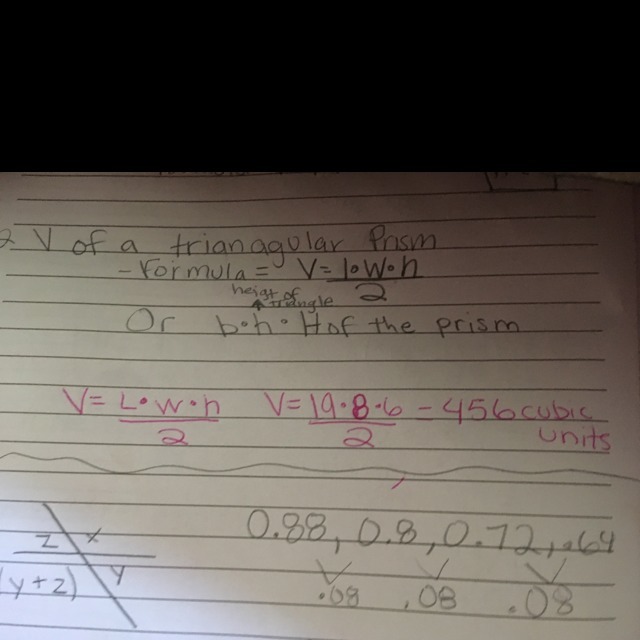 2. V of a trianagular Prism
- Formula = V = l•w•h
2
heigt of
triangle
Or b•h•H of the prism
V = L•w•h V = 19•8•6 = 456 cubic
2 2 units
z x
(y+z) y
0.88, 0.8, 0.72, .64
.08 .08 .08